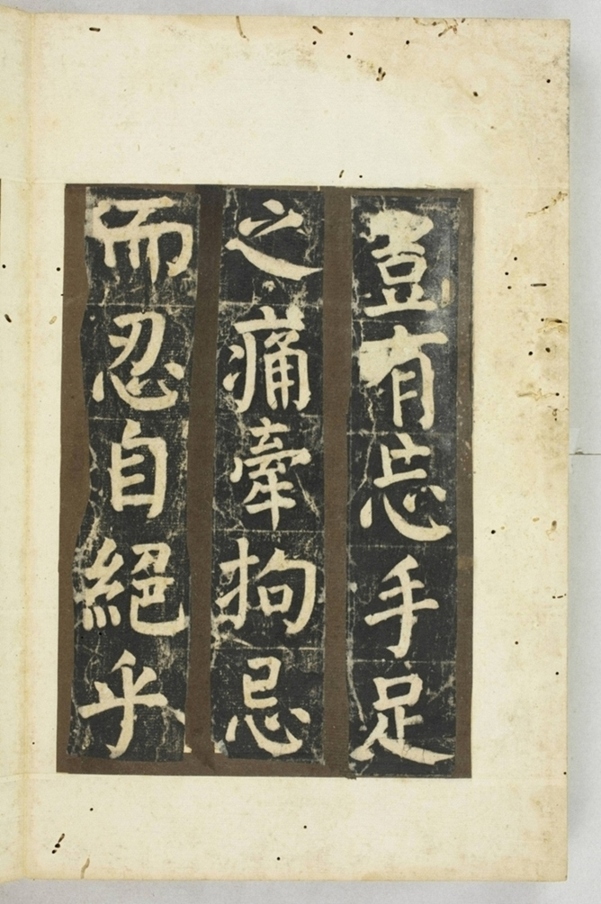 豈有忘手足
之痛牽拘忌
而忍自絕乎